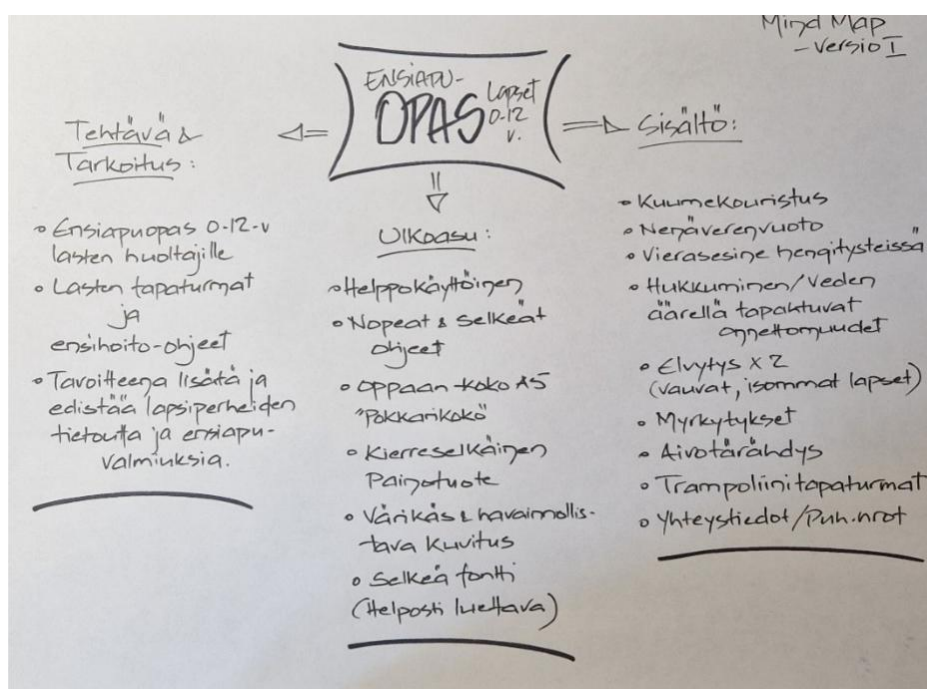 Mind Map
- versio I
ENSIAPU-
OPAS
Lapset
0-12
v.
Tehtävä &
Tarkoitus:
• Ensiapuopas 0-12-v
lasten huoltajille
• Lasten tapaturmat
ja
ensihoito-ohjeet
• Tavoitteena lisätä ja
edistää lapsiperheiden
tietoutta ja ensiapu-
valmiuksia.
Ulkoasu:
• Helppokäyttöinen
• Nopeat & selkeät
ohjeet
• Oppaan koko A5
"Pokkarikoko"
• Kierreselkäinen
Painotuote
• Värikäs & havainnollis-
tava kuvitus
• Selkeä fontti
(Helposti luettava)
Sisältö:
• Kuumekouristus
• Nenäverenvuoto
• Vierasesine hengitysteissä
• Hukkuminen/Veden
äärellä tapahtuvat
onnettomuudet
• Elvytys x 2
(vauvat, isommat lapset)
• Myrkytykset
• Aivotärähdys
• Trampoliinitapaturmat
• Yhteystiedot/Puh.nrot